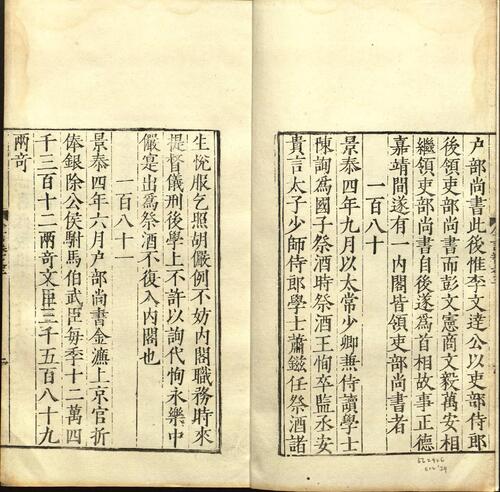 户部尚書此後惟李文達公以吏部侍郎
後領吏部尚書而彭文憲商文毅萬安相
繼領吏部尚書自後遂爲首相故事正德
嘉靖間遂有一内閣皆領吏部尚書者
一百八十
景泰四年九月以太常少卿兼侍讀學士
陳詢爲國子祭酒時祭酒王恂卒監丞安
貴言太子少師侍郎學士蕭鎡任祭酒諸
生悅服乞照胡儼例不妨内閣職務時來
提督儀刑後學上不許以詢代恂永樂中
儼寔出爲祭酒不復入内閣也
一百八十一
景泰四年六月户部尚書金濂上京官折
俸銀除公侯駙馬伯武臣每季十二萬四
千三百十二兩奇文臣三千五百八十九
兩奇